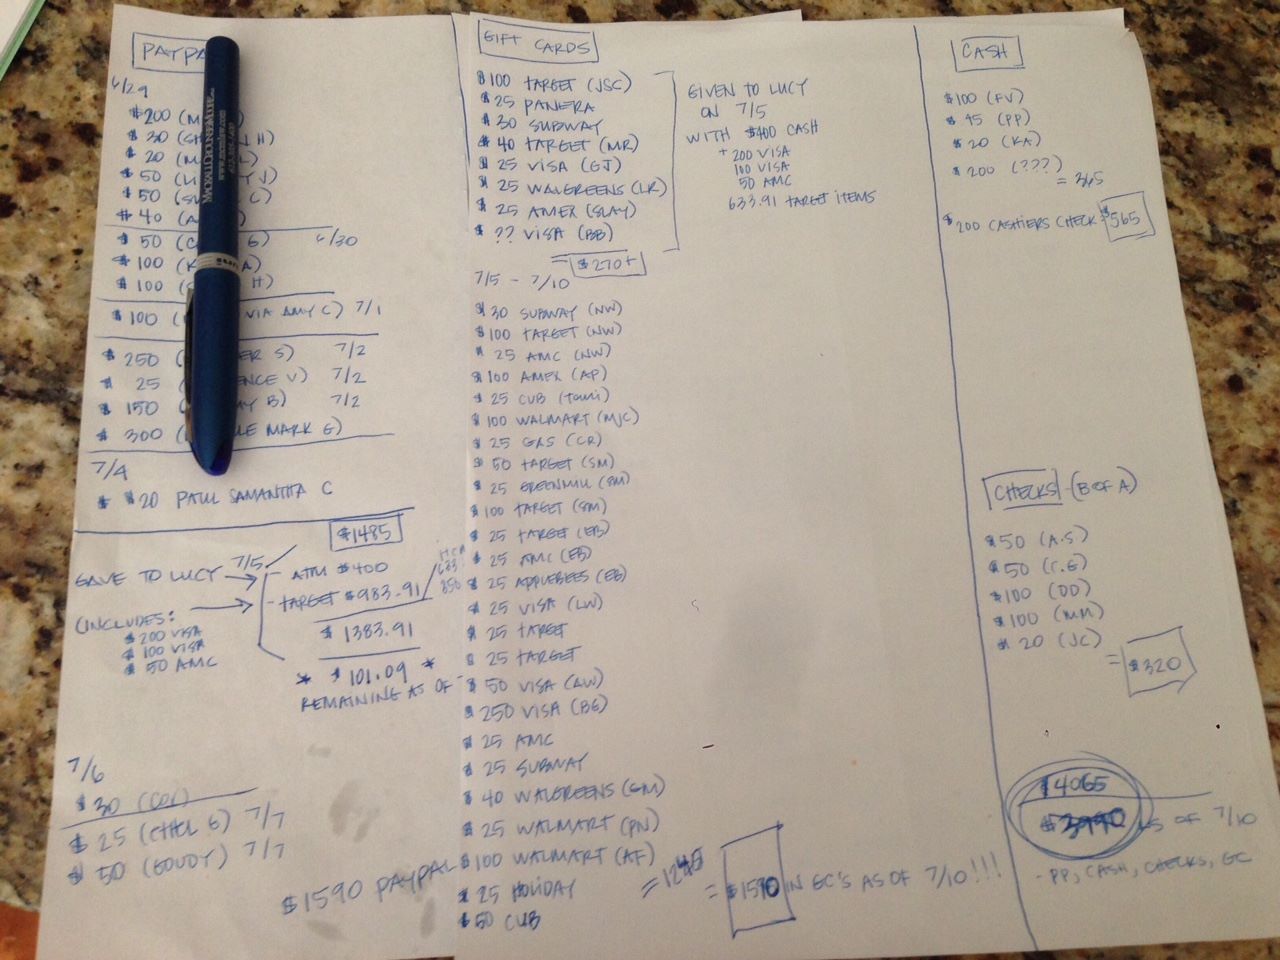 PAYPA
6/29
$200 (M
$30 (SH H
$20 (M L)
$50 (LI Y J)
$50 (SU C)
$40 (A
$50 (C G) 6/30
$100 (K A)
$100 ( H)
$100 ( VIA AMY C) 7/1
$250 ( ER S) 7/2
$ 25 ( ENCE V) 7/2
$ 150 ( MY B) 7/2
$ 300 ( LE MARK G)
7/4
$ $20 PAUL SAMANTHA C
$1485
GAVE TO LUCY 7/5 → - ATM $400
- TARGET $983.91
(INCLUDES:
$200 VISA
$100 VISA
$50 AMC
$1383.91
* $101.09 *
REMAINING AS OF
7/6
$30
$ 25 (CHEL G) 7/7
$ 50 (GOUDY) 7/7
$1590 PAYPAL
GIFT CARDS
$100 TARGET (JSC)
$25 PANERA
$30 SUBWAY
$40 TARGET (MR)
$25 VISA (GJ)
$25 WALGREENS (LR)
$25 AMEX (SLAY)
$ ?? VISA (BB)
= $270+
GIVEN TO LUCY
ON 7/5
WITH $400 CASH
+ 200 VISA
100 VISA
50 AMC
633.91 TARGET ITEMS
7/5 - 7/10
$30 SUBWAY (NW)
$100 TARGET (NW)
$25 AMC (NW)
$100 AMEX (AP)
$25 CUB (TAMI)
$100 WALMART (MJC)
$25 GAS (CR)
$50 TARGET (SM)
$25 GREENMILL (SM)
$100 TARGET (SM)
$25 TARGET (EB)
$25 AMC (EB)
$25 APPLEBEES (EB)
$25 VISA (LW)
$25 TARGET
$25 TARGET
$50 VISA (AW)
$250 VISA (BG)
$25 AMC
$25 SUBWAY
$40 WALGREENS (SM)
$25 WALMART (PN)
$100 WALMART (AF)
$25 HOLIDAY
$50 CUB
= 1245
= $1590 IN GC'S AS OF 7/10!!!
CASH
$100 (FV)
$45 (PP)
$20 (KA)
$200 (???)
= 365
$200 CASHIERS CHECK = $565
CHECKS - (B OF A)
$50 (A.S)
$50 (C.G)
$100 (DD)
$100 (MM)
$20 (JC)
= $320
$4065
$3990 AS OF 7/10
- PP, CASH, CHECKS, GC